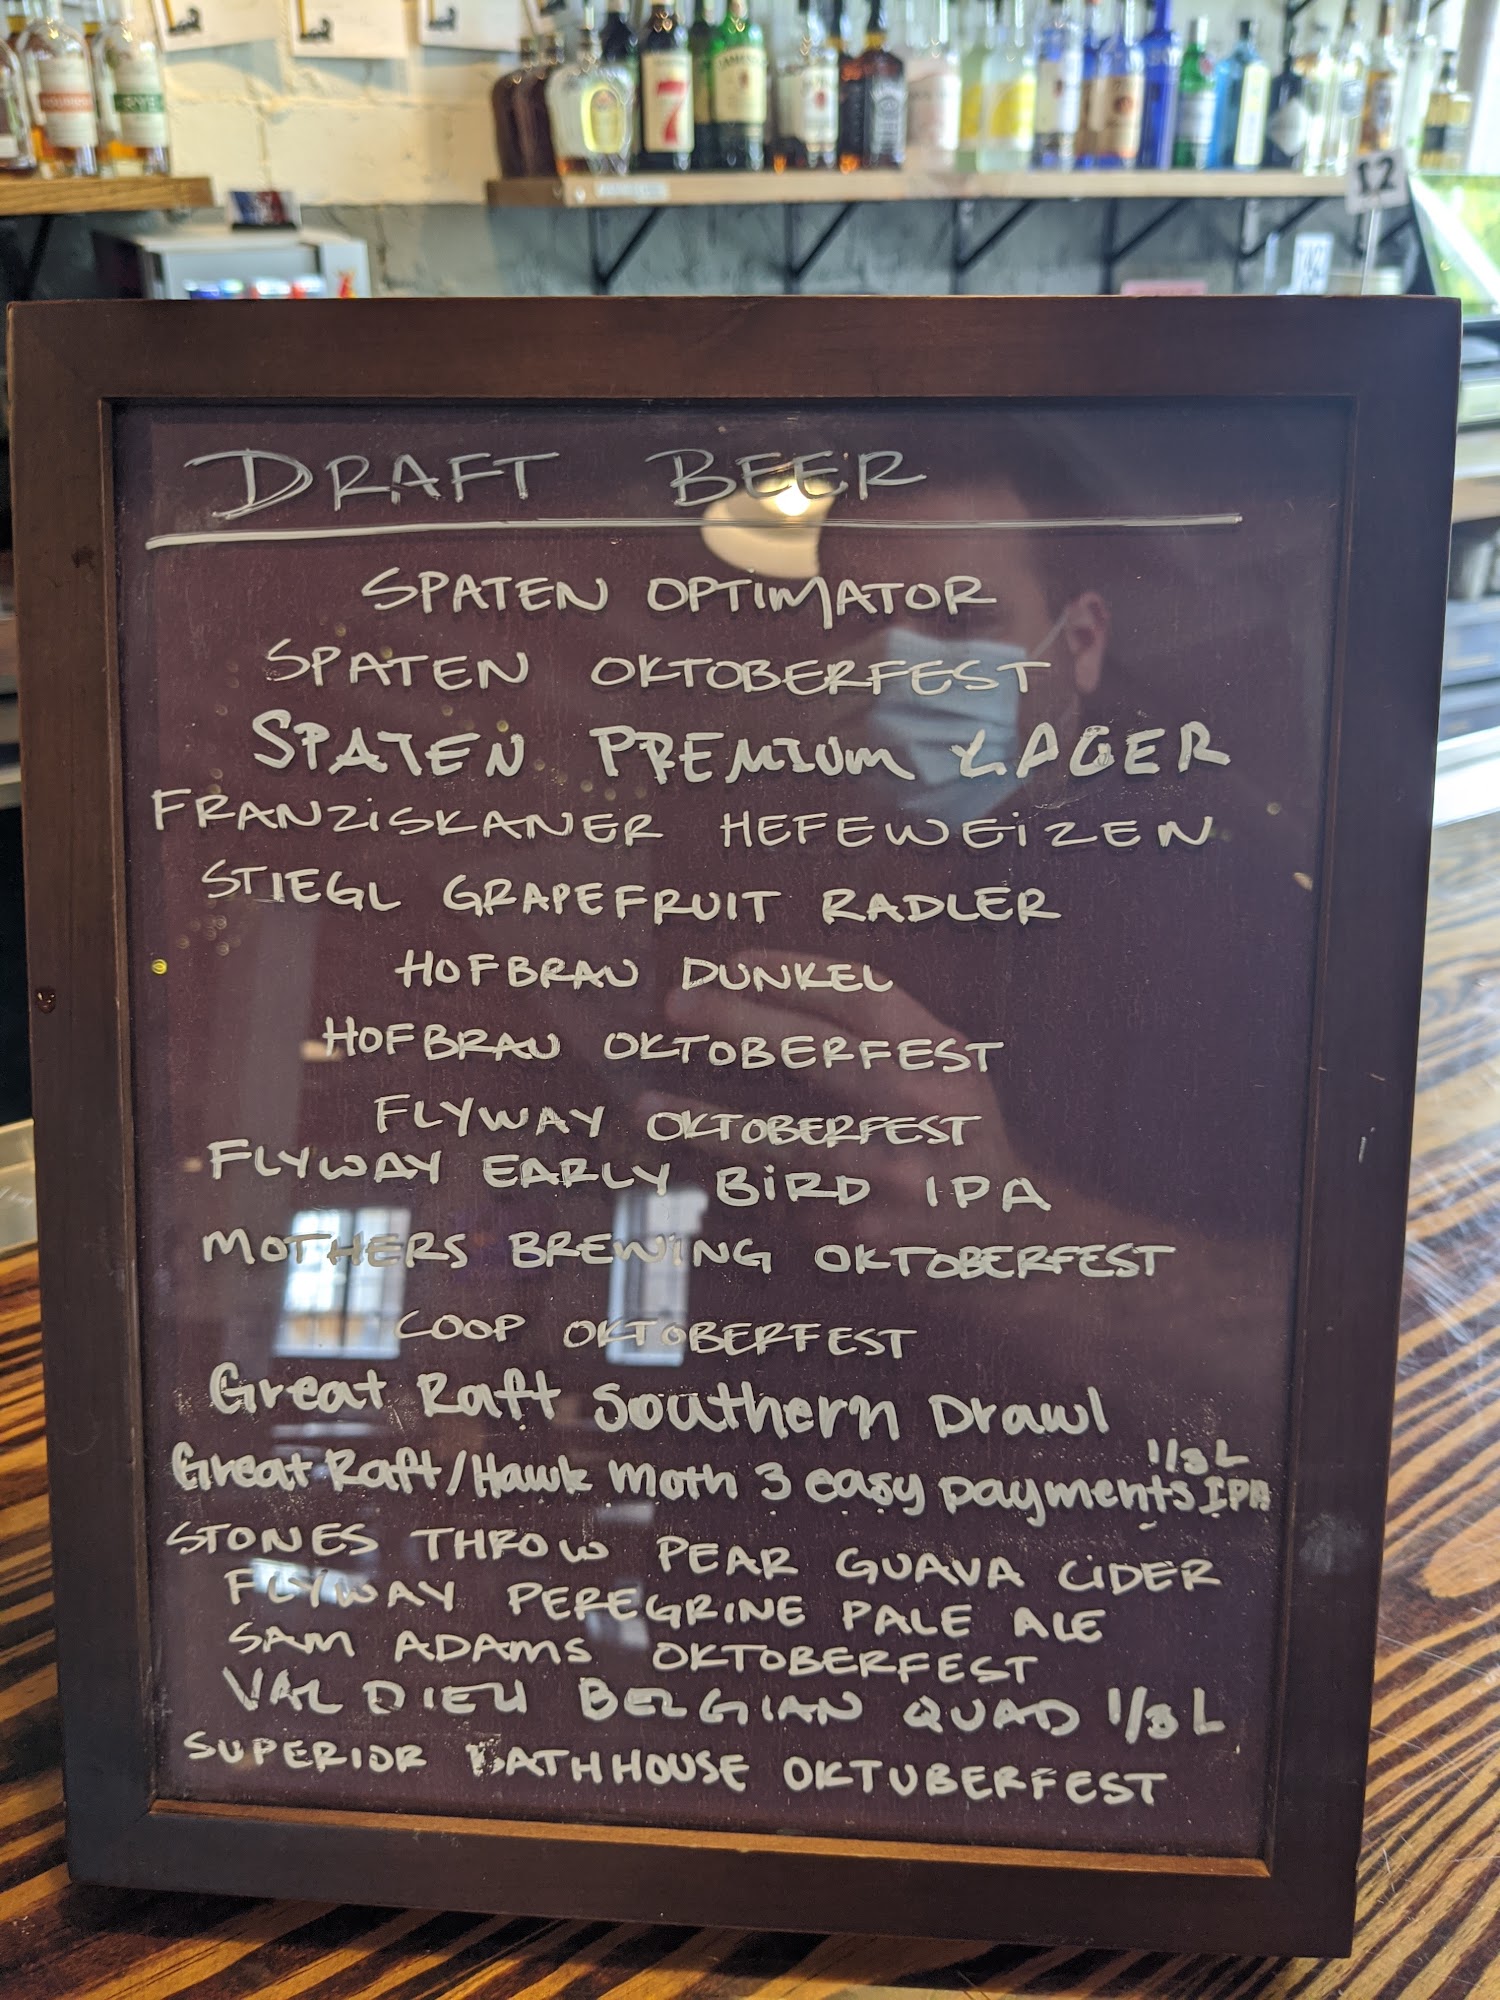 JAMESON
7
12
DRAFT BEER
SPATEN OPTIMATOR
SPATEN OKTOBERFEST
SPATEN PREMIUM LAGER
FRANZiSKANER HEFEWEiZEN
STIEGL GRAPEFRUIT RADLER
HOFBRAU DUNKEL
HOFBRAU OKTOBERFEST
FLYWAY OKTOBERFEST
FLYWAY EARLY BiRD IPA
MOTHERS BREWING OKTOBERFEST
COOP OKTOBERFEST
Great Raft Southern Drawl
Great Raft/Hawk Moth 3 easy payments IPA 1/3 L
STONES THROW PEAR GUAVA CiDER
FLYWAY PEREGRINE PALE ALE
SAM ADAMS OKTOBERFEST
VAL DIEU BELGIAN QUAD 1/3 L
SUPERIOR BATHHOUSE OKTUBERFEST